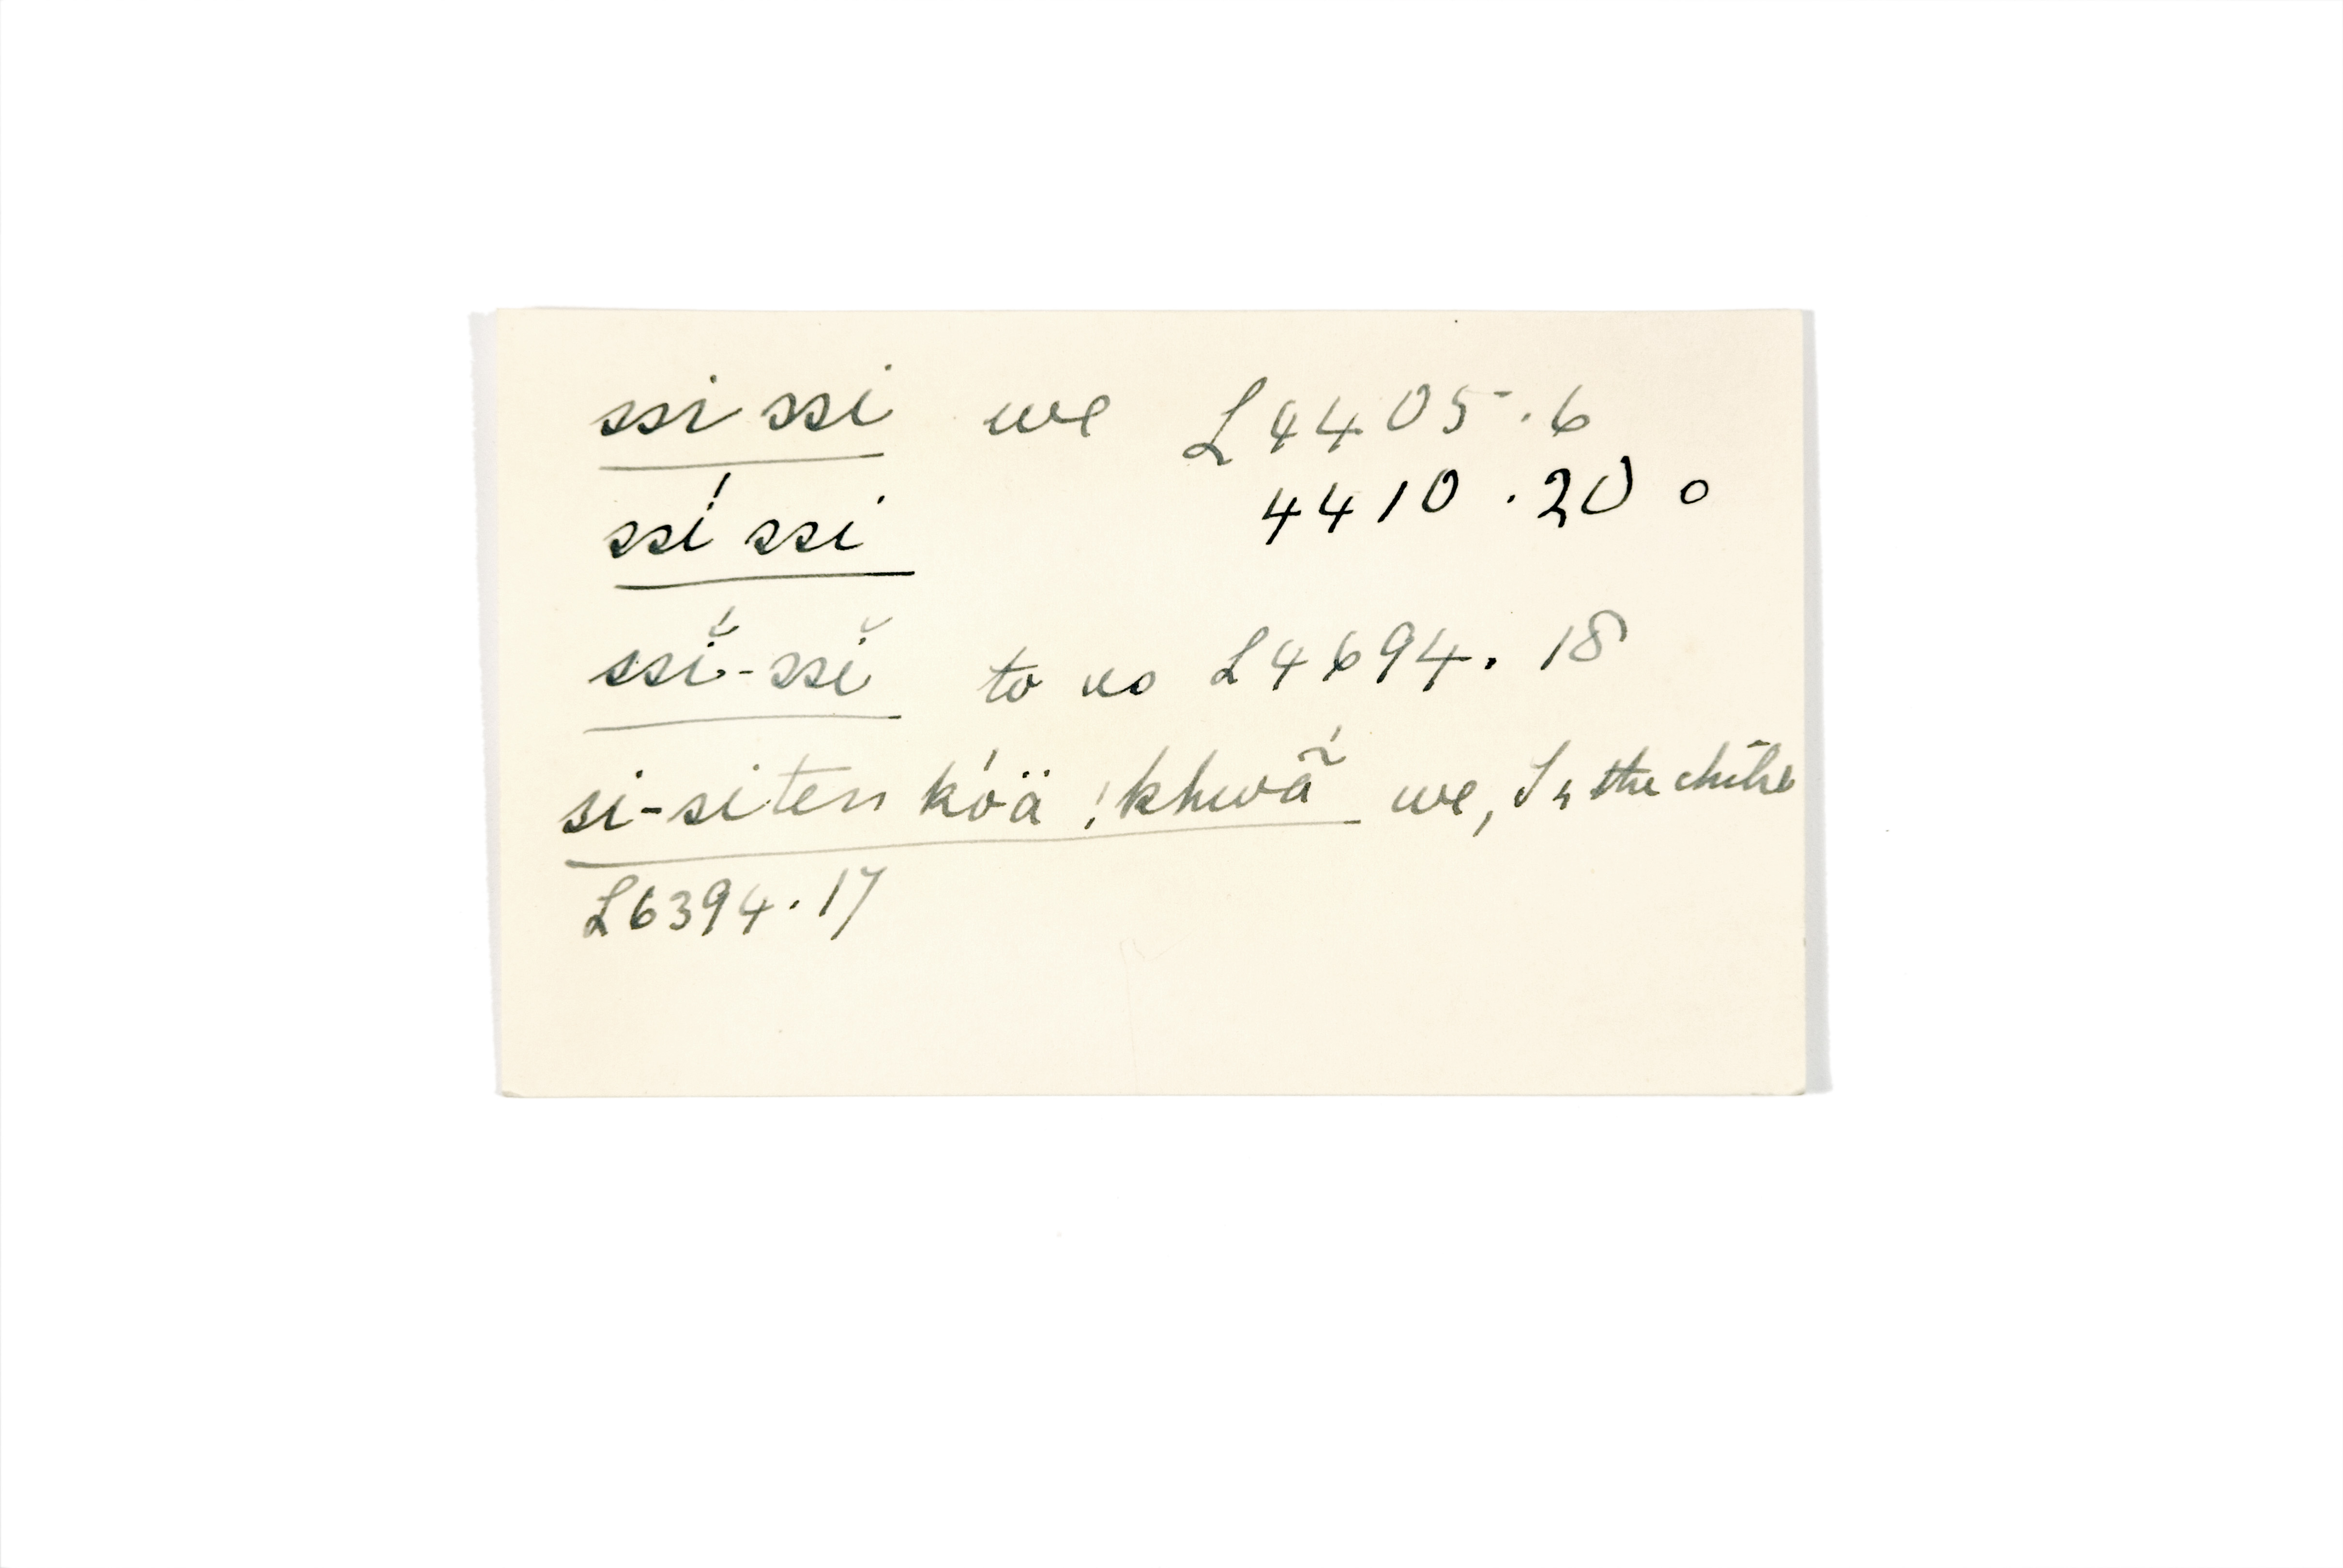 ssi ssi we L4405.6
ssí ssi 4410.20 o
ssĭ́-ssĭ to us L4694.18
si-siten kóä !khwã́ we, I & the child
L6394.17